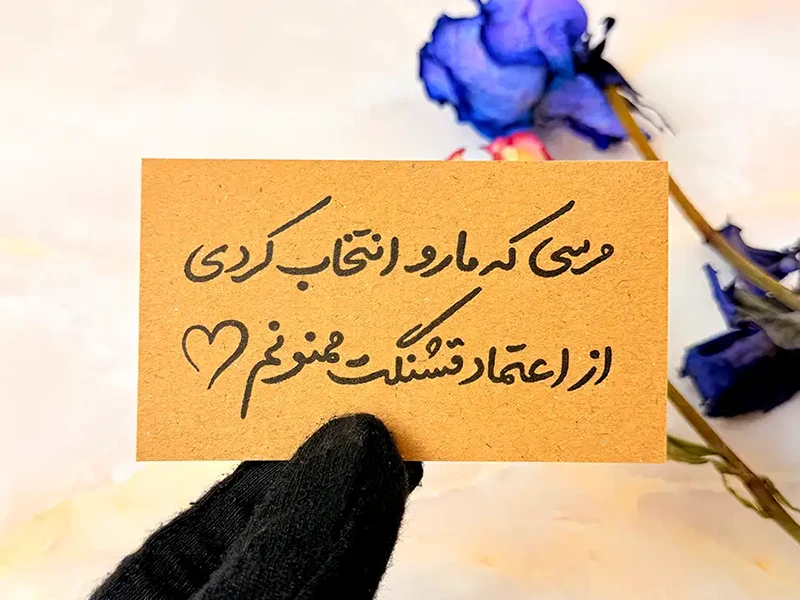 مرسی که مارو انتخاب کردی
از اعتماد قشنگت ممنونم ♡